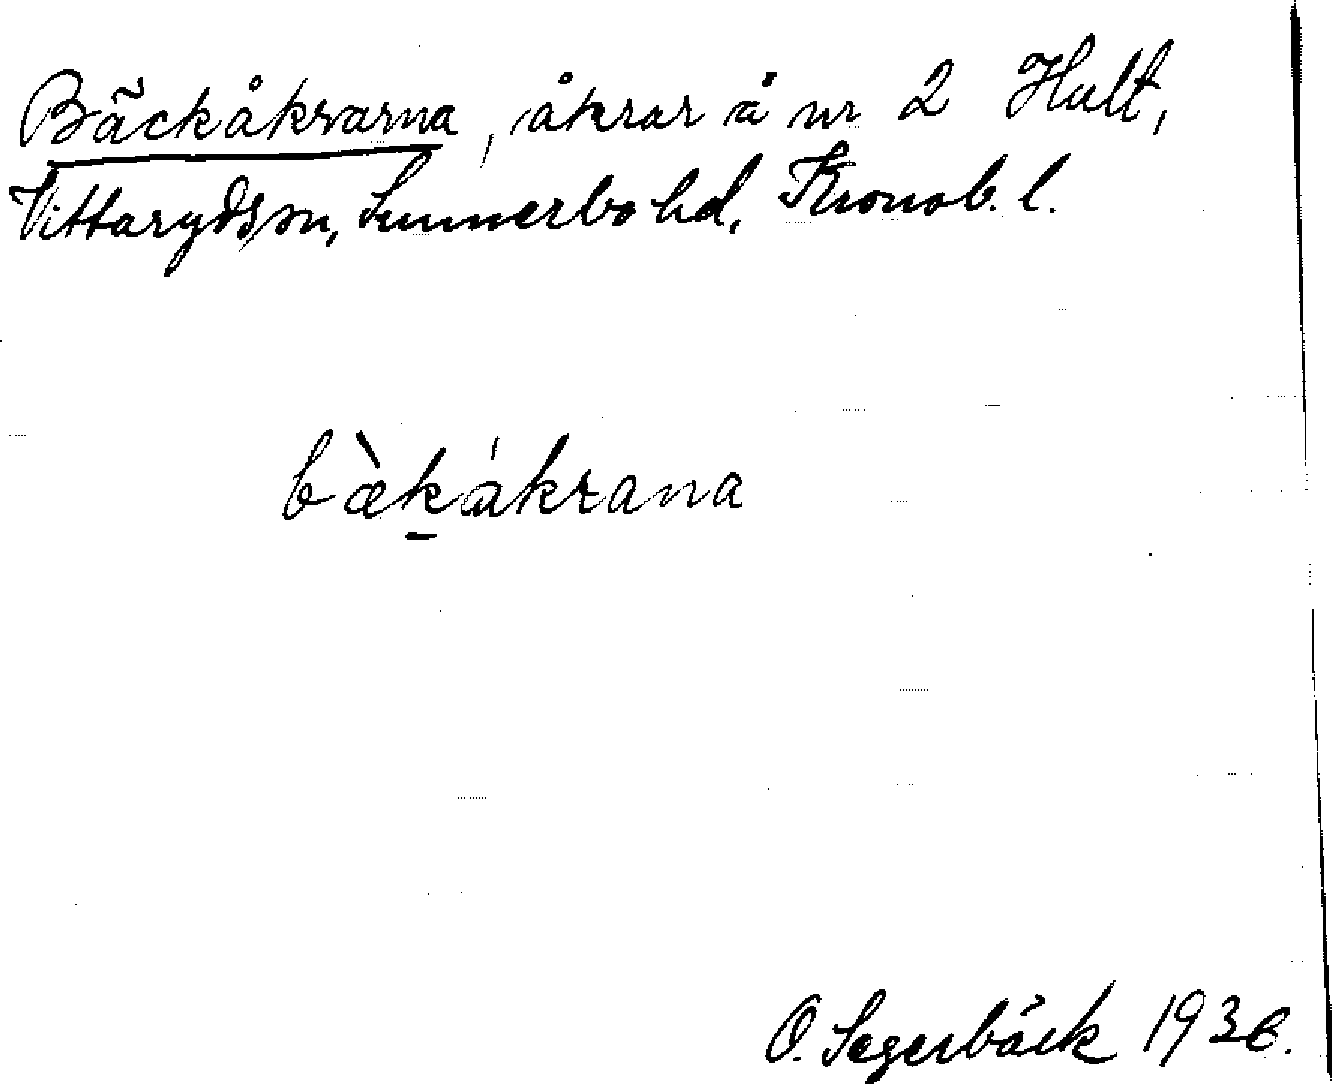 Bäckåkrarna, åkrar å nr 2 Hult,
Vittaryds sn, Sunnerbo hd, Kronob. l.
bæ̀kåkrana
O. Segerbäck 1936.